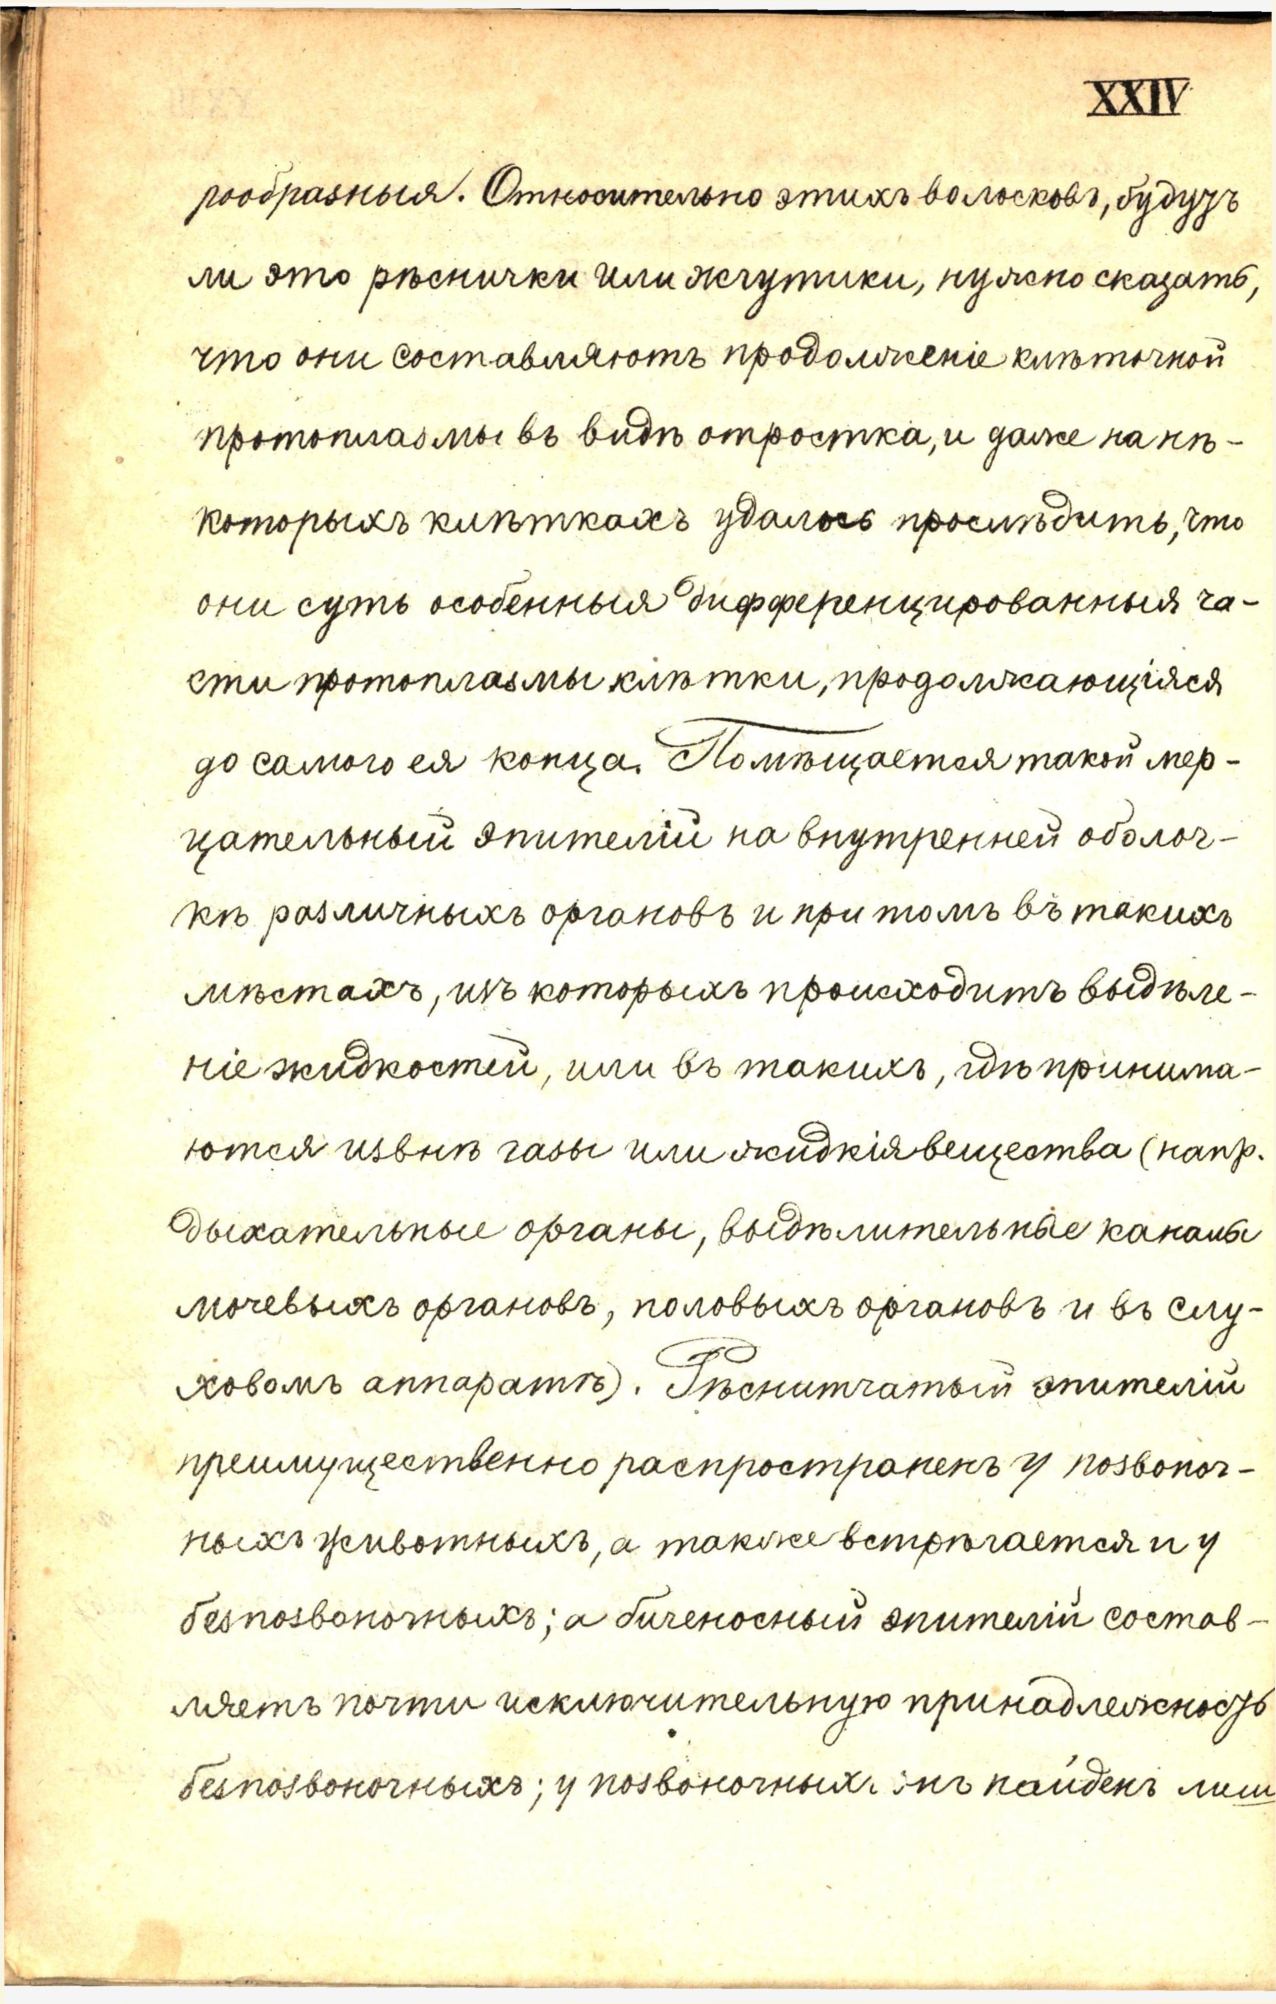 XXIV
рообразныя. Относительно этихъ волосковъ, будутъ
ли это рѣснички или жгутики, нужно сказать,
что они составляютъ продолженіе клѣточной
протоплазмы въ видѣ отростка, и даже на нѣ-
которыхъ клѣткахъ удалось прослѣдить, что
они суть особенныя дифференцированныя ча-
сти протоплазмы клѣтки, продолжающіяся
до самого ея конца. Помѣщается такой мер-
цательный эпителій на внутренней оболоч-
кѣ различныхъ органовъ и притомъ въ такихъ
мѣстахъ, изъ которыхъ происходитъ выдѣле-
ніе жидкостей, или въ такихъ, гдѣ принима-
ются извнѣ газы или жидкія вещества (напр.
дыхательные органы, выдѣлительные каналы
мочевыхъ органовъ, половыхъ органовъ и въ слу-
ховомъ аппаратѣ). Рѣснитчатый эпителій
преимущественно распространенъ у позвоноч-
ныхъ животныхъ, а также встрѣчается и у
безпозвоночныхъ; а биченосный эпителій состав-
ляетъ почти исключительную принадлежность
безпозвоночныхъ; у позвоночныхъ онъ найденъ лиш